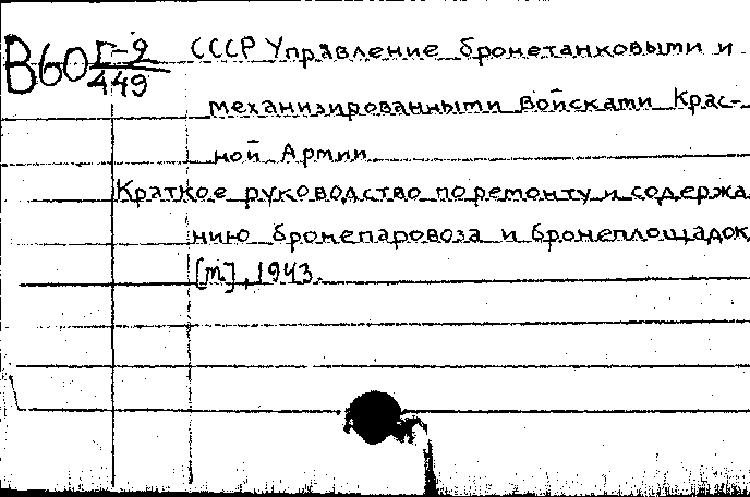 В60 Г-9/449
СССР Управление бронетанковыми и
механизированными войсками Крас-
ной Армии
Краткое руководство по ремонту и содержа
нию бронепаровоза и бронеплощадок
[м], 1943.